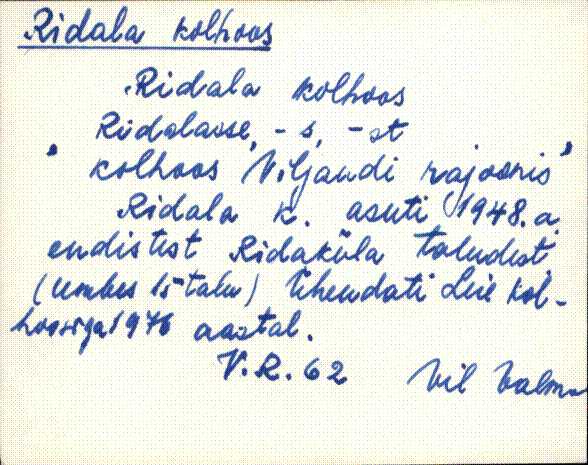 Ridala kolhoos
Ridala kolhoos
Ridalasse, -s, -st
"kolhoos Viljandi rajoonis"
Ridala k. asuti 1948.a.
endistest Ridaküla taludest
(umbes 15 talu) Ühendati Leie kol-
hoosiga 1976 aastal.
V.R. 62 Vil Valma